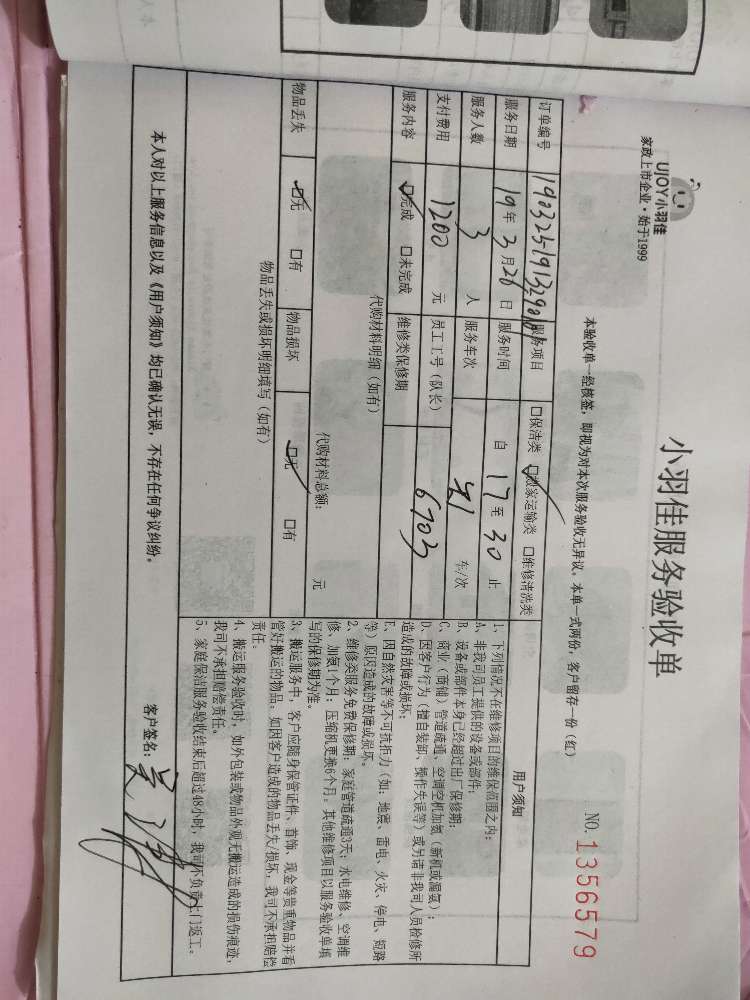 UJOY小羽佳
家政上市企业·始于1999
小羽佳服务验收单
NO.1356579
本验收单一经核签，即视为对本次服务验收无异议。本单一式两份，客户留存一份（红）
订单编号
服务项目 口保洁类 口搬家运输类 口维修清洗类
服务日期 19年3月26日 服务时间 自17至30止
服务人数 3人 服务车次 车/次
支付费用 1200元 员工工号（队长） 6703
服务内容 口完成 口未完成 维修类保修期
代购材料明细（如有）
代购材料总额： 元
物品丢失 口无 口有 物品损坏 口无 口有
物品丢失或损坏明细填写（如有）
用户须知
1、下列情况不在维修项目的维保范围之内：
A、非我司员工提供的设备或部件；
B、设备或部件本身已经超过出厂保修期；
C、商业（商铺）管道疏通、空调空机加氨（新机或漏氨）；
D、因客户行为（擅自装卸、操作失误等）或另请非我司人员检修所
造成的故障或损坏；
E、因自然灾害等不可抗拒力（如：地震、雷电、火灾、停电、短路
等）原因造成的故障或损坏。
2、维修类服务免费保修期：家庭管道疏通3天；水电维修、空调维
修、加氨1个月；压缩机更换6个月。其他维修项目以服务验收单填
写的保修期为准。
3、搬运服务中，客户应随身保管证件、首饰、现金等贵重物品并看
管好搬运的物品。如因客户造成的物品丢失/损坏，我司不承担赔偿
责任。
4、搬运服务验收时，如外包装或物品外观无搬运造成的损伤痕迹，
我司不承担赔偿责任。
5、家庭保洁服务验收结束后超过48小时，我司不负责上门返工。
本人对以上服务信息以及《用户须知》均已确认无误，不存在任何争议纠纷。
客户签名：